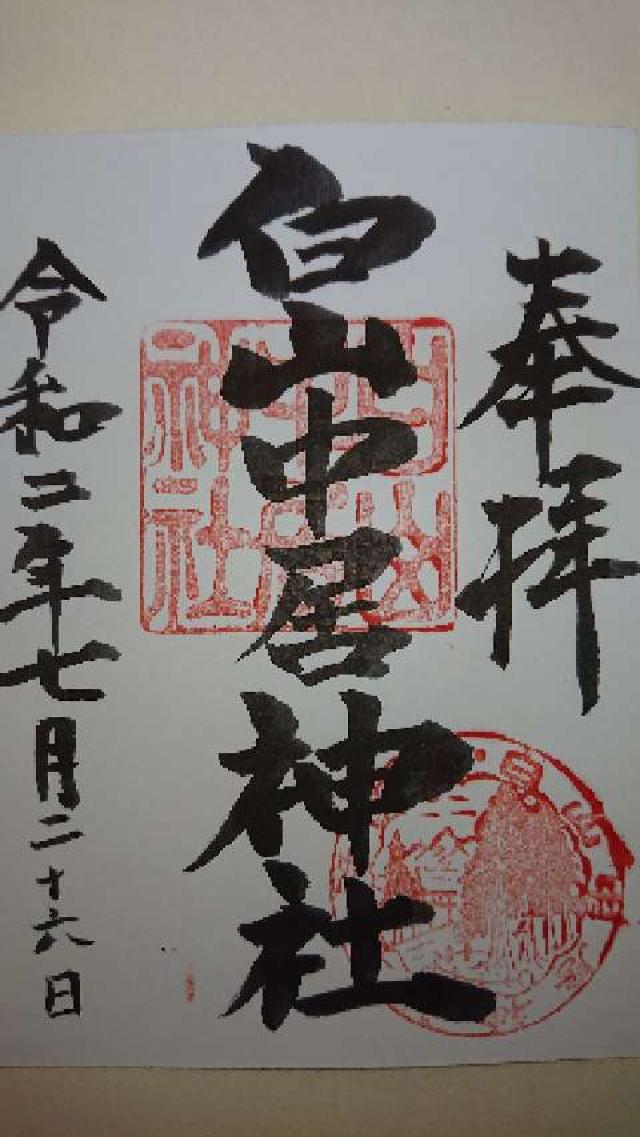 奉拝
白山中居神社
白山中居神社
令和二年七月二十六日